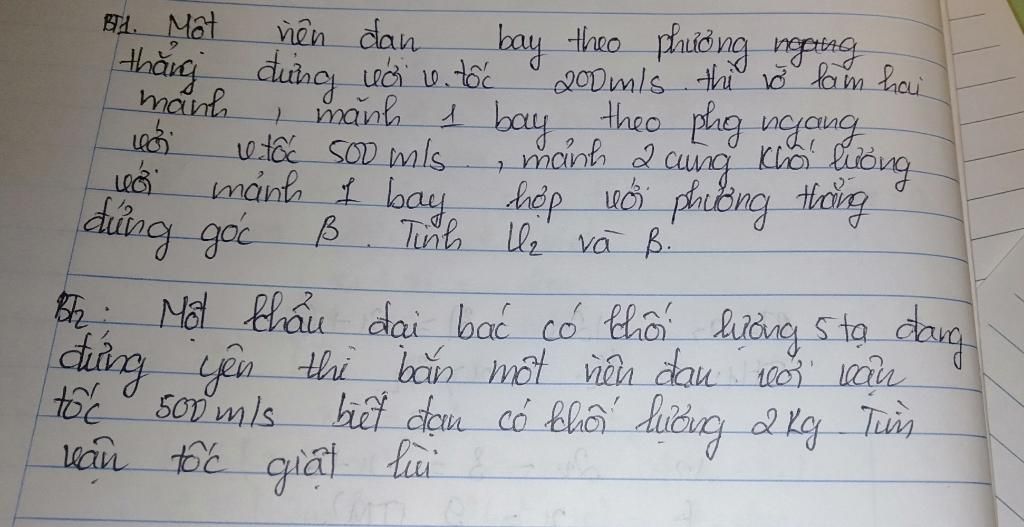 BT1. Một viên đạn bay theo phương ngang
thẳng đứng với v.tốc 200m/s. thì vỡ làm hai
mảnh, mảnh 1 bay theo phg ngang
với v.tốc 500 m/s, mảnh 2 cùng khối lượng
với mảnh 1 bay hợp với phương thẳng
đứng góc β. Tính v₂ và β.
BT2: Một khẩu đại bác có khối lượng 5 tạ đang
đứng yên thì bắn một viên đạn với vận
tốc 500m/s biết đạn có khối lượng 2kg. Tìm
vận tốc giật lùi